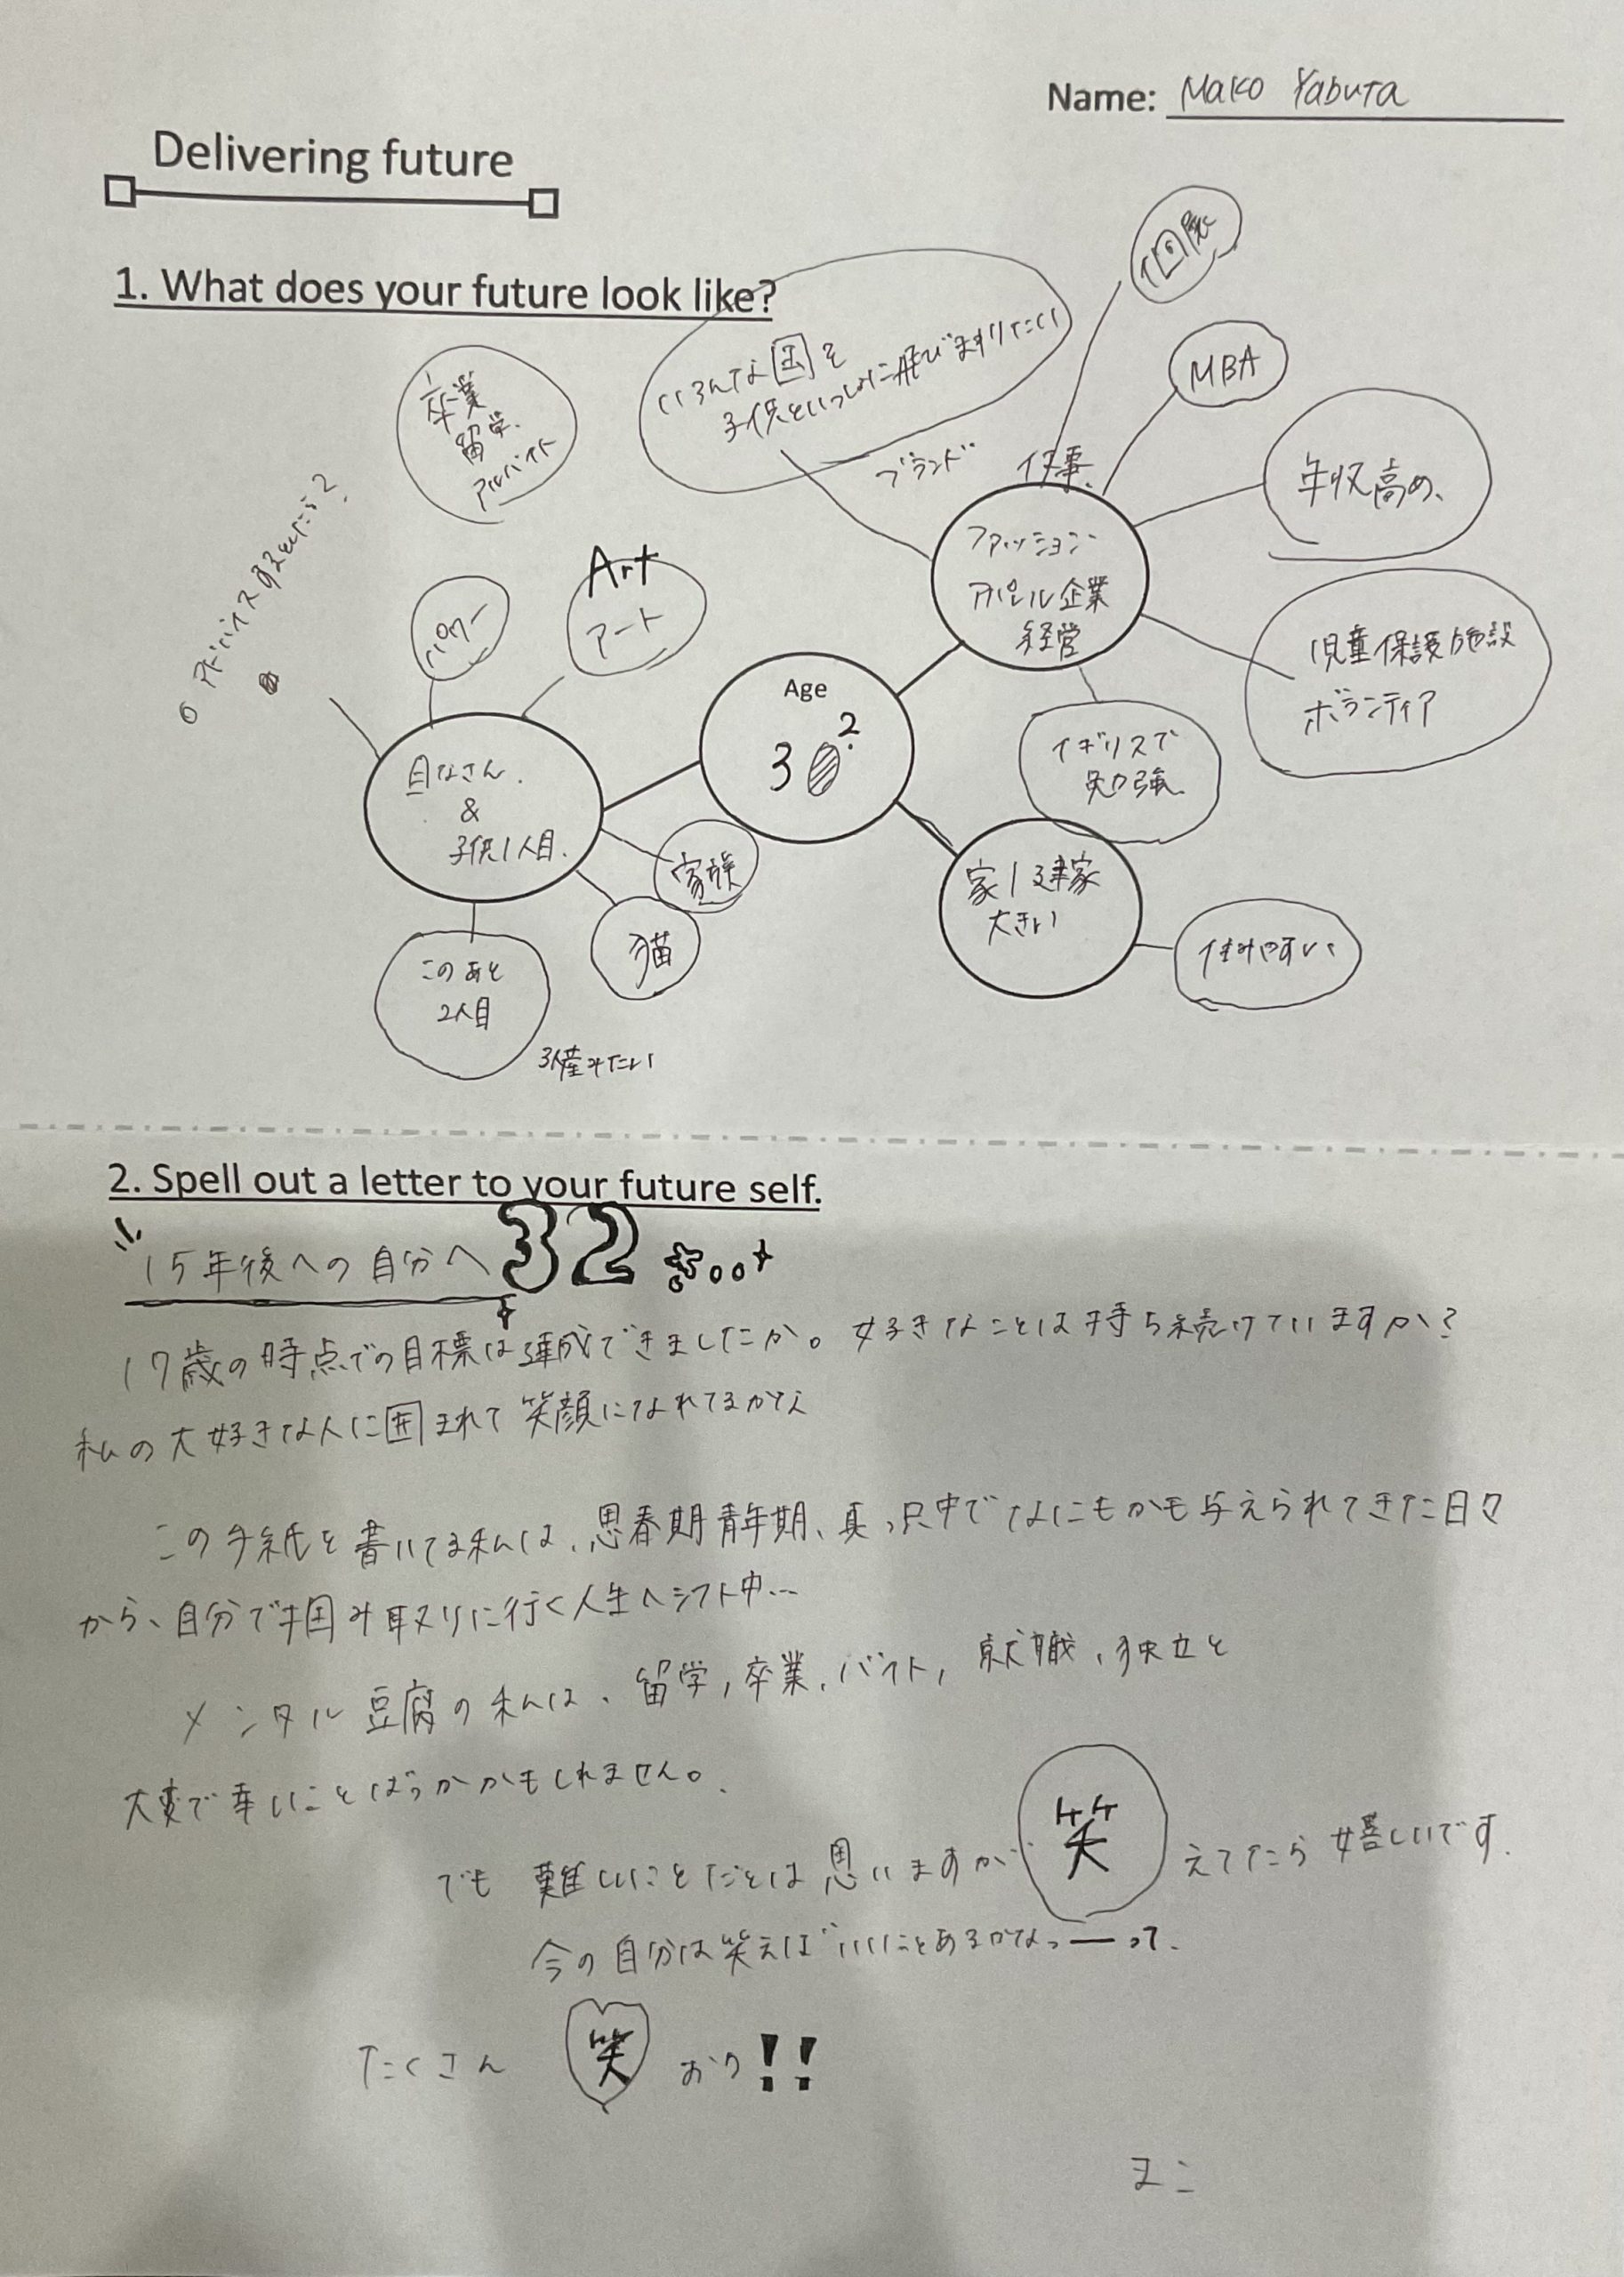 Name: Mako Yabuta
Delivering future
1. What does your future look like?
個展
MBA
いろんな国を
子供といっしょに飛びまわりたい
卒業
留学、
アルバイト
ブランド
仕事、
年収高め、
ファッション
アパレル企業
経営
Art
アート
パワー
アドバイスするとしたら?
児童保護施設
ボランティア
Age
32
イギリスで
勉強
&
子供1人目.
家族
猫
家1建家
大きい
住みやすい
このあと
2人目
3人産みたい
2. Spell out a letter to your future self.
15年後への自分へ 32
17歳の時点での目標は達成できましたか。好きなことは持ち続けていますか?
私の大好きな人に囲まれて笑顔になれてるかな
この手紙を書いてる私は、思春期青年期、真っ只中でなにもかも与えられてきた日々
から、自分で掴み取りに行く人生へシフト中...
メンタル豆腐の私は、留学,卒業,バイト,就職,独立と
大変で辛いことばっかかもしれません。
でも 難しいことだとは思いますが 笑えてたら嬉しいです.
今の自分は笑えばいいことあるかなっーって.
たくさん 笑おう!!
まこ